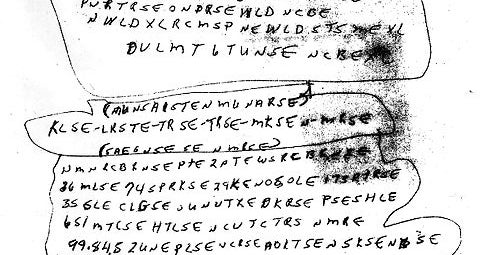 PNRTRSEONDRSEWLD NCBE
NWLDXLRCMSP NEWLDSTSMEXL
DULMT6TUNSE NCBEX
(MUNSAISTENMUNARSE)
KLSE-LRSTE-TRSE-TRSE-MKSEN-MRSE
(SAEGNSE SE NMRSE)
NMNRCBRNSEPTE2PTEWSRCBRNSE
36MLSE74SPRKSE29KENOSOLE173RTRSE
35GLE CLGSE UNUTXEDKRSE PSESHLE
651MTCSE HTLSE NCUTCTRS NMRE
99.84.52UNEPLSENCRSEAOLTSENSKSENBSE